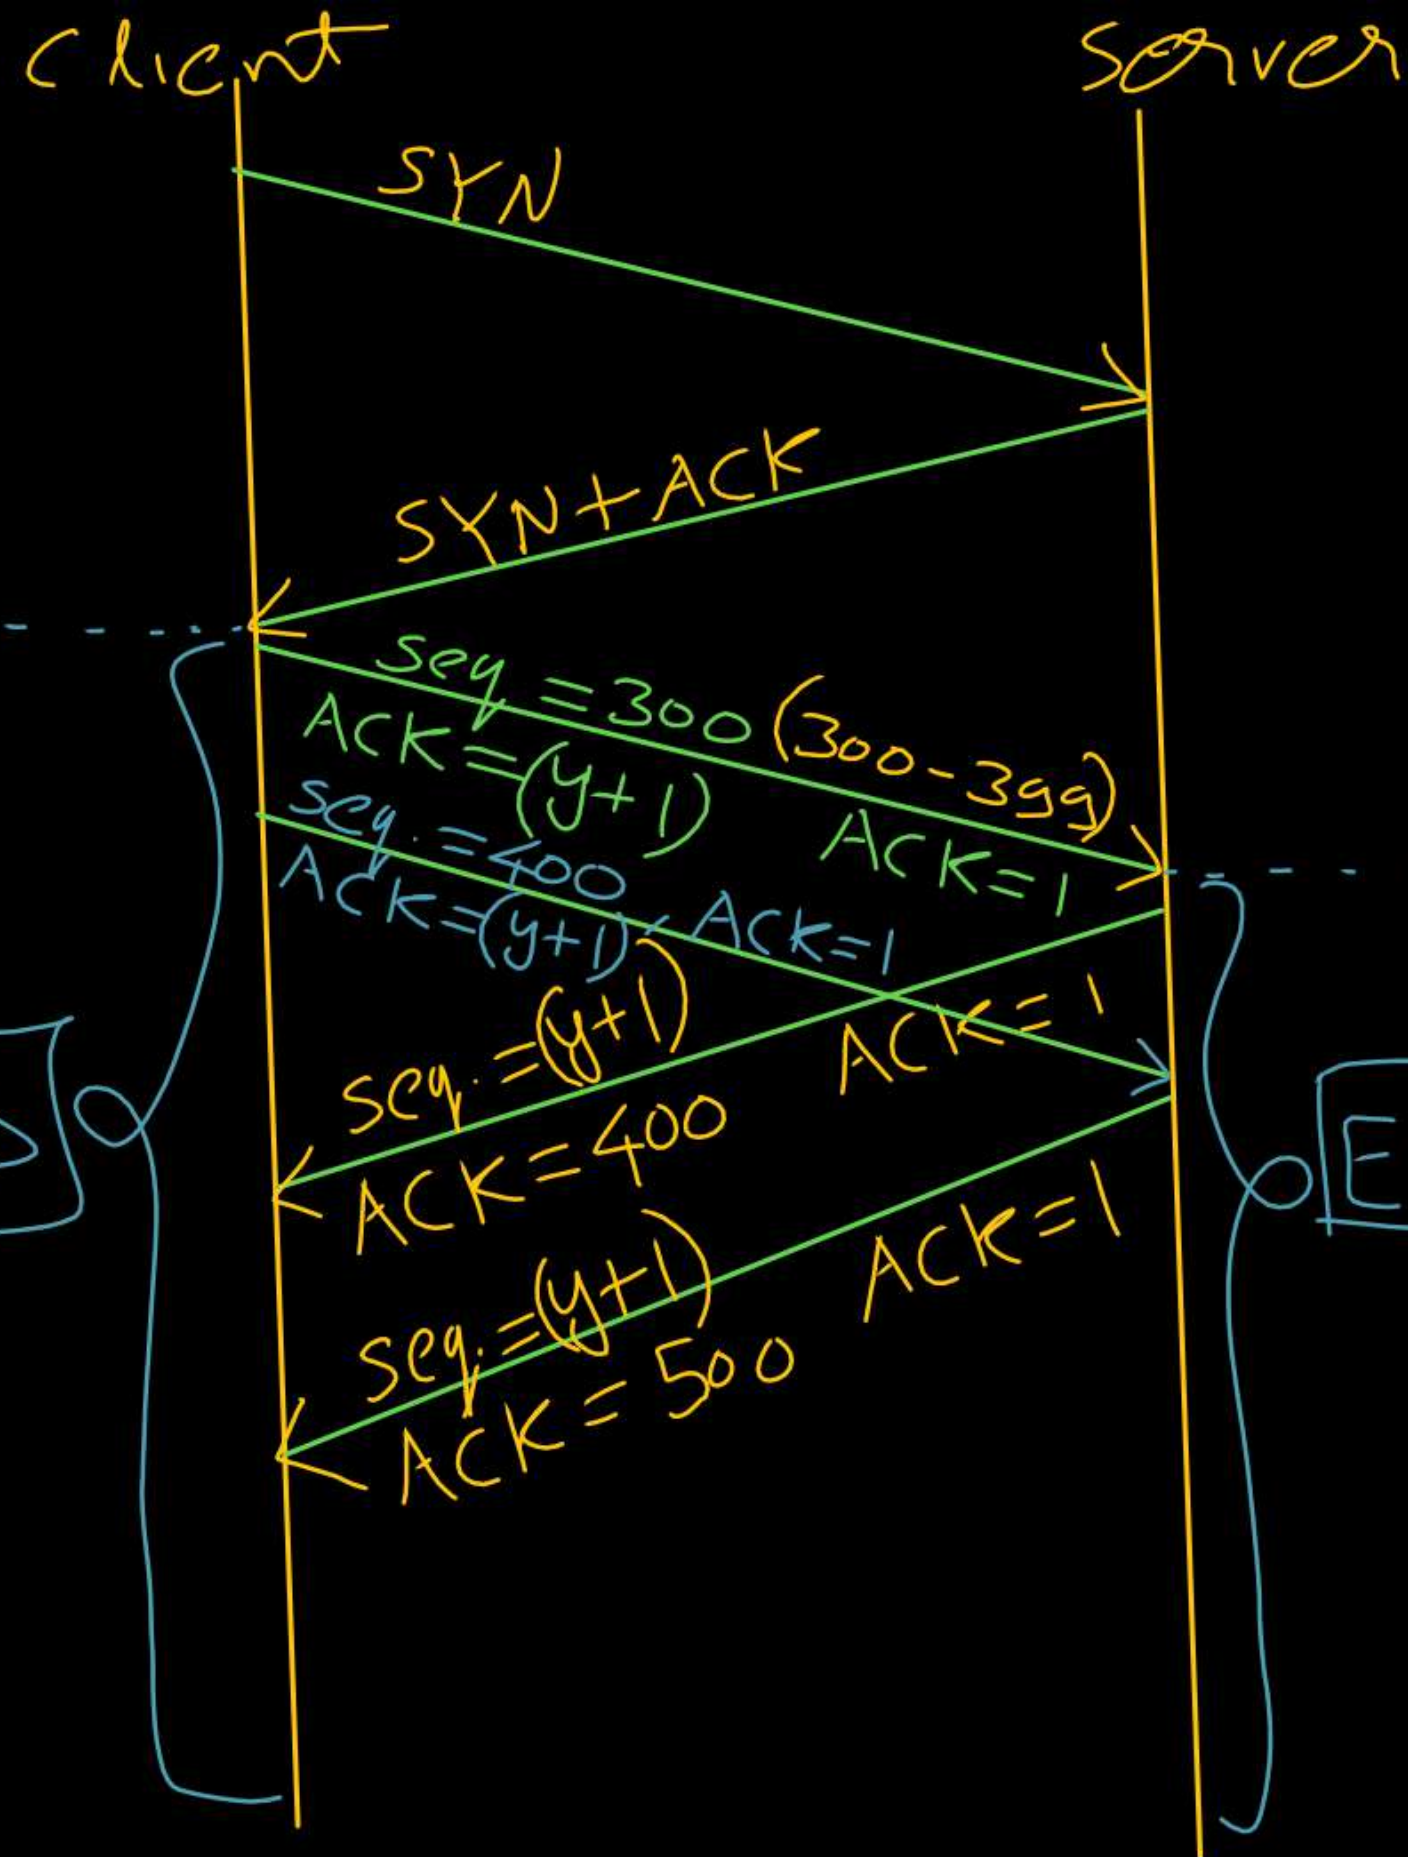 Client
Server
SYN
SYN+ACK
seq = 300 (300-399)
ACK=(y+1)
ACK=1
seq. =400
ACK=(y+1)
ACK=1
seq. =(y+1)
ACK=1
ACK=400
seq. =(y+1)
ACK=1
ACK=500
E